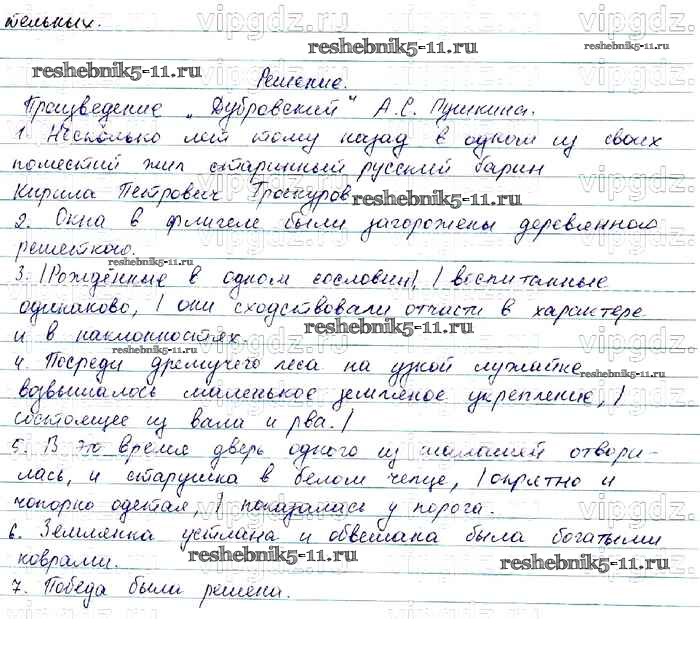 тельных.
Решение.
Произведение „Дубровский" А.С. Пушкина.
1. Несколько лет тому назад в одном из своих
поместий жил старинный русский барин
Кирила Петрович Троекуров
2. Окна в флигеле были загорожены деревянною
решеткою.
3. /Рождённые в одном сословии,/ /воспитанные
одинаково,/ они сходствовали отчасти в характере
и в наклонностях.
4. Посреди дремучего леса на узкой лужайке
возвышалось маленькое земляное укрепление, /
состоящее из вала и рва./
5. В это время дверь одного из шалашей отвори-
лась, и старушка в белом чепце, /опрятно и
чопорно одетая,/ показалась у порога.
6. Землянка устлана и обвешана была богатыми
коврами.
7. Победа была решена.
vipgdz.ru
reshebnik5-11.ru